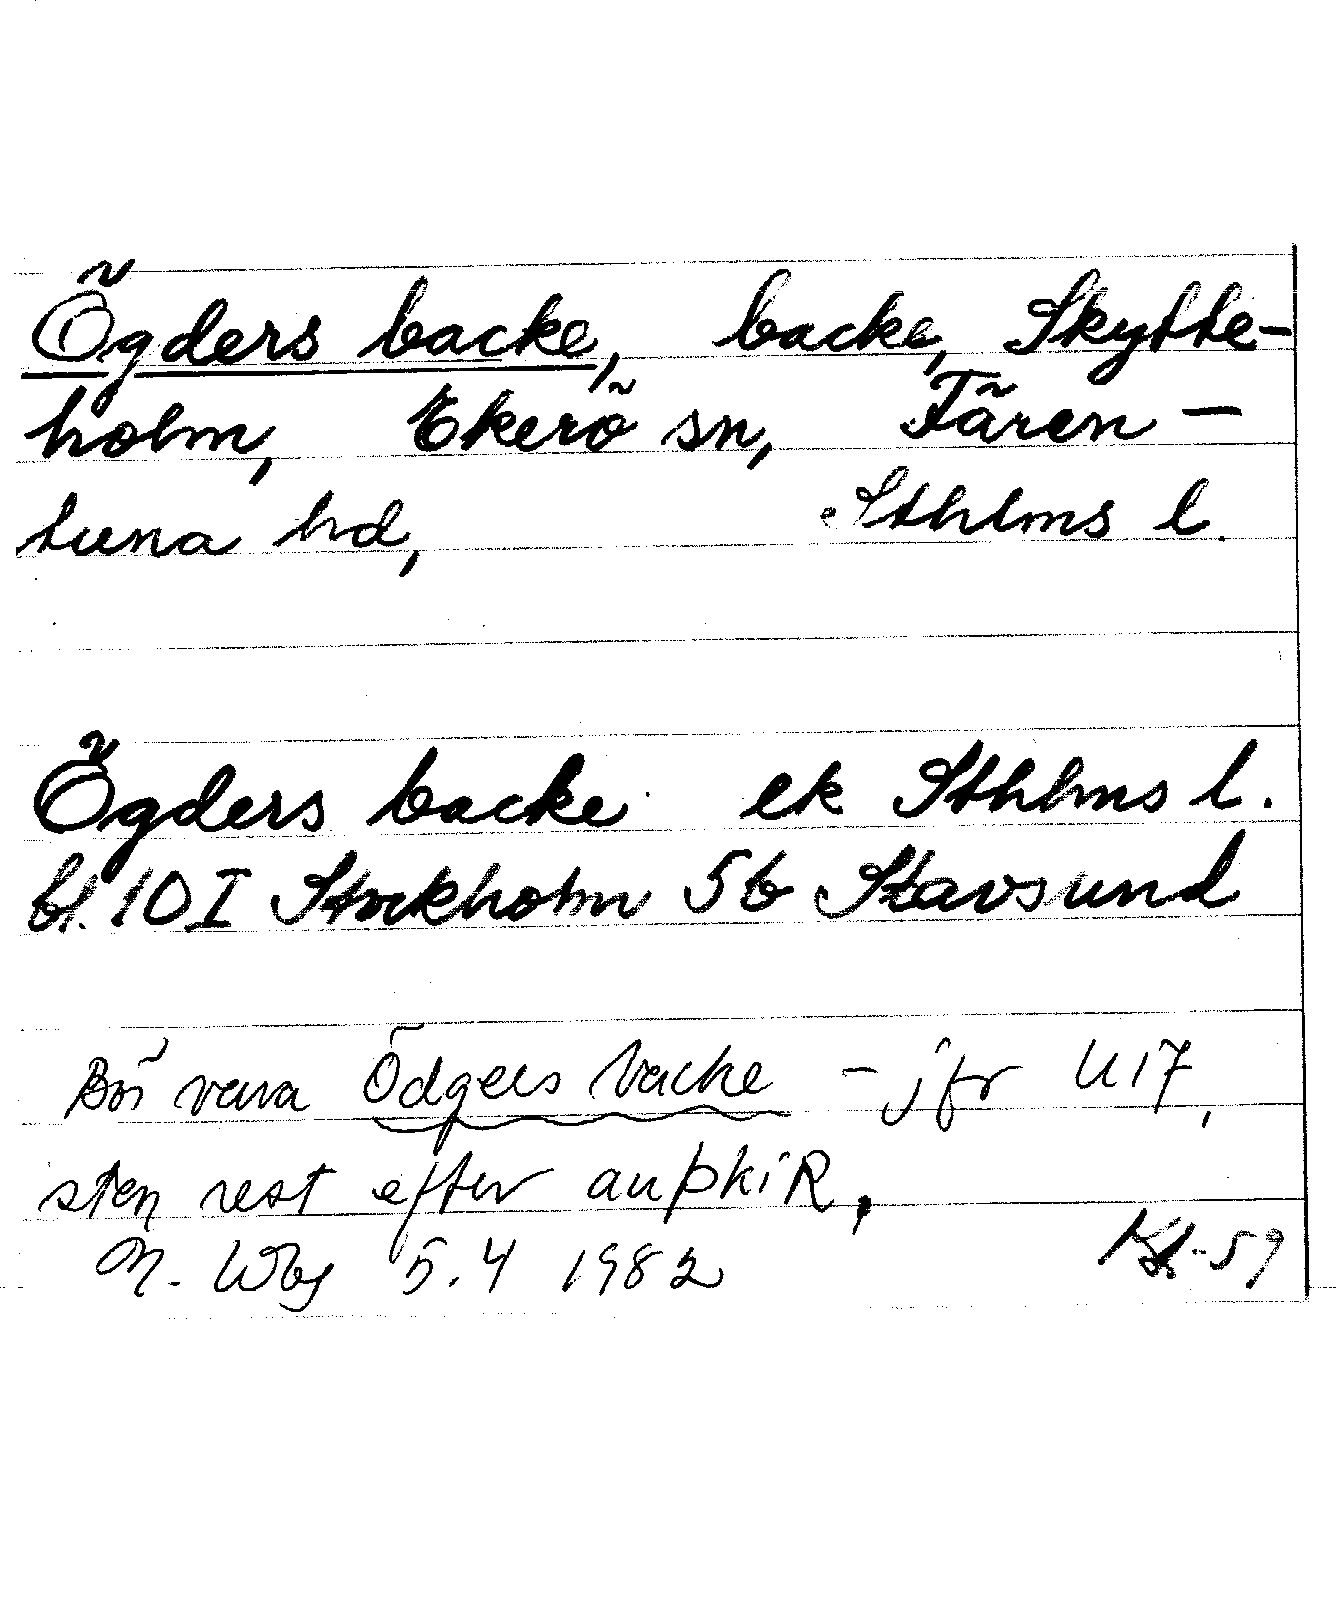 Ögders backe, backe, Skytte-
holm, Ekerö sn, Fären-
tuna hd, Sthlms l.
Ögders backe ek Sthlms l.
bl. 10 I Stockholm 5b Stavsund
Bör vara Ödgers backe - jfr U 17,
sten rest efter auþkiR,
N. Wbg 5.4 1982
-59